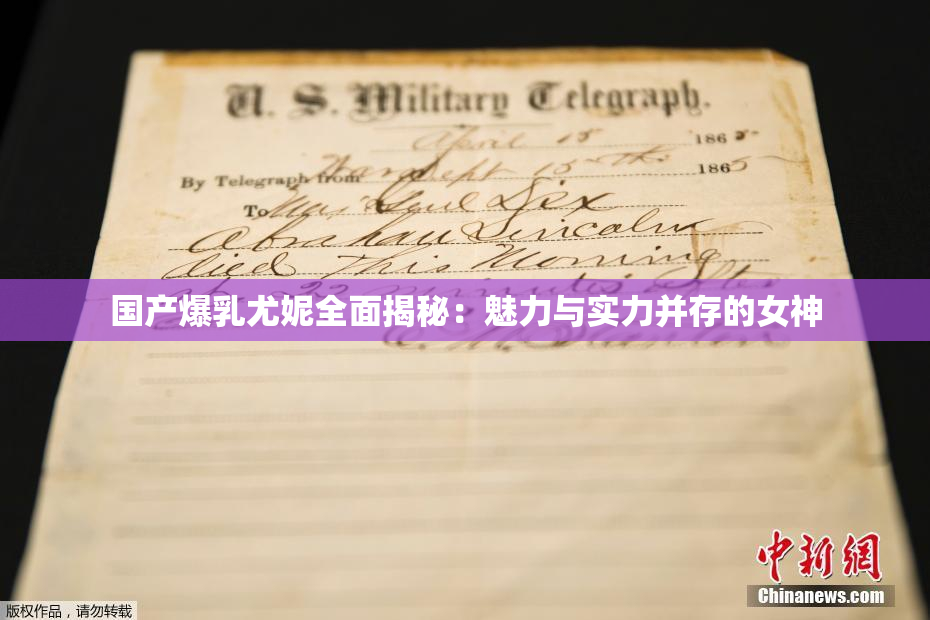 U. S. Military Telegraph.
April 15 1865
By Telegraph from War Dept 15th 1865
To Maj Genl Dix
Abraham Lincoln
died This Morning
at 22 minutes after
国产爆乳尤妮全面揭秘：魅力与实力并存的女神
E. M. Stanton
中新网
Chinanews.com
版权作品，请勿转载